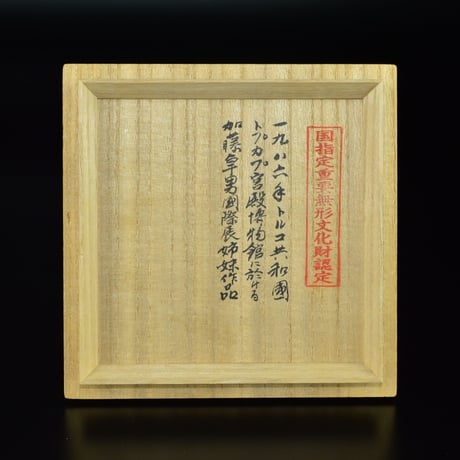 国指定重要無形文化財認定
一九八六年トルコ共和國
トプカプ宮殿博物館に於ける
加藤卓男國際展姉妹作品